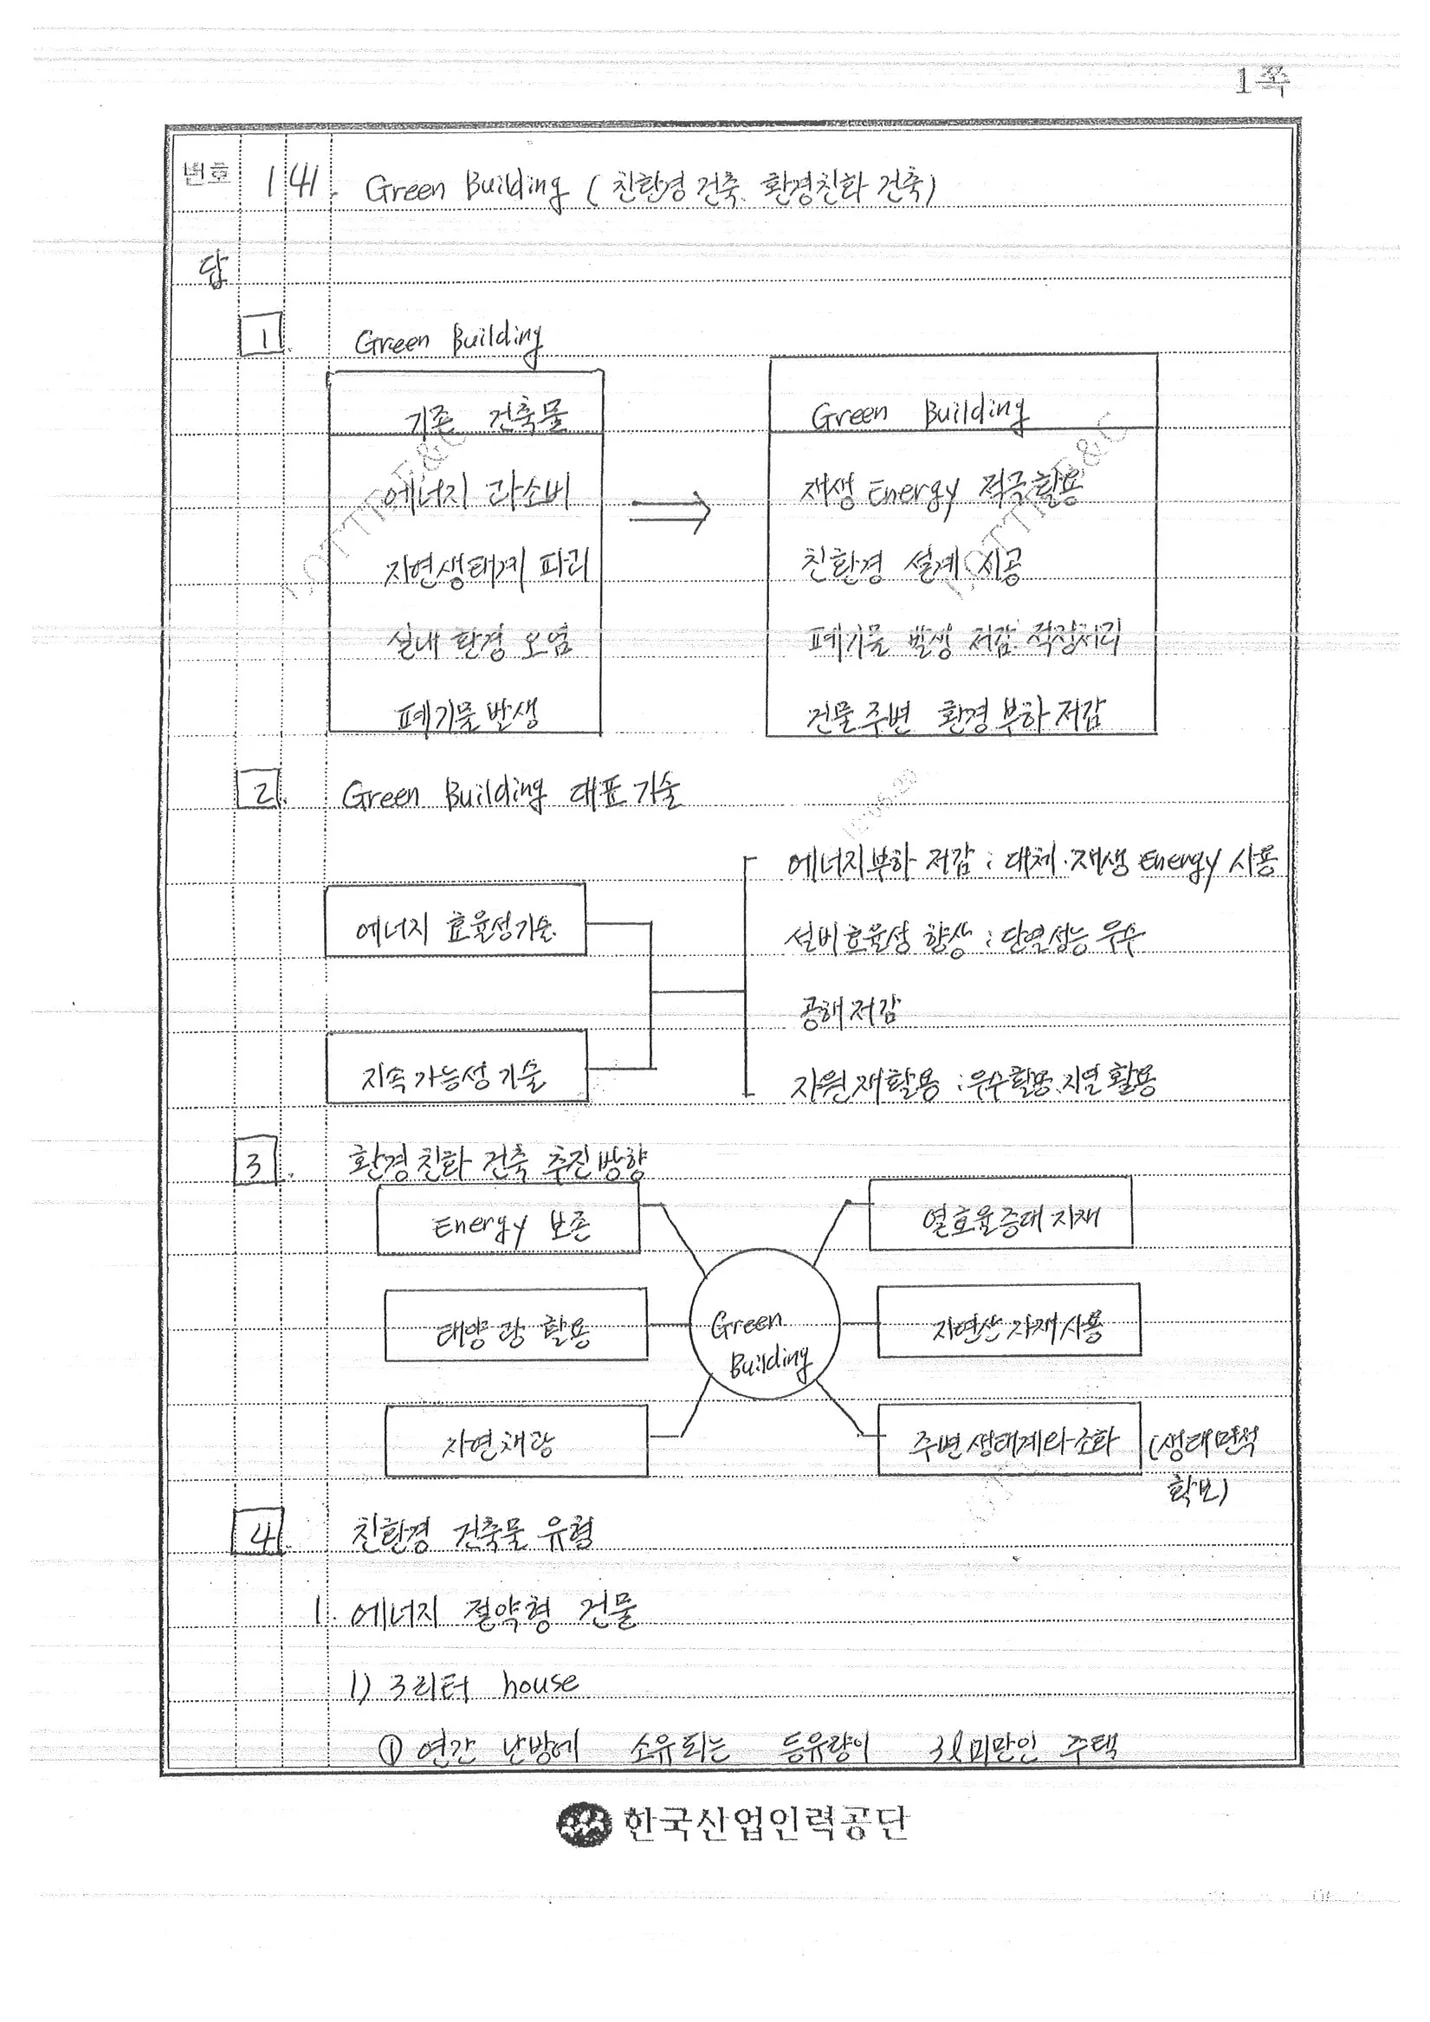 1쪽
번호 141. Green Building (친환경 건축. 환경친화 건축)
답
1. Green Building
기존 건축물
에너지 과소비
자연생태계 파괴
실내 환경 오염
폐기물 발생
Green Building
재생 Energy 적극 활용
친환경 설계 시공
폐기물 발생 저감. 적정처리
건물 주변 환경 부하 저감
LOTTE E&C
LOTTE E&C
2. Green Building 대표 기술
에너지 효율성 기술.
지속 가능성 기술
에너지부하 저감 : 대체·재생 Energy 사용
설비효율성 향상 : 단열성능 우수
공해 저감
자원 재활용 : 우수활용. 지열 활용
3. 환경 친화 건축 추진방향
Energy 보존
태양광 활용
자연채광
Green
Building
열효율증대 자재
자연산 자재 사용
주변 생태계와 조화 (생태면적
확보)
4. 친환경 건축물 유형
1. 에너지 절약형 건물
1) 3리터 house
① 연간 난방에 소유되는 등유량이 3ℓ미만인 주택
한국산업인력공단